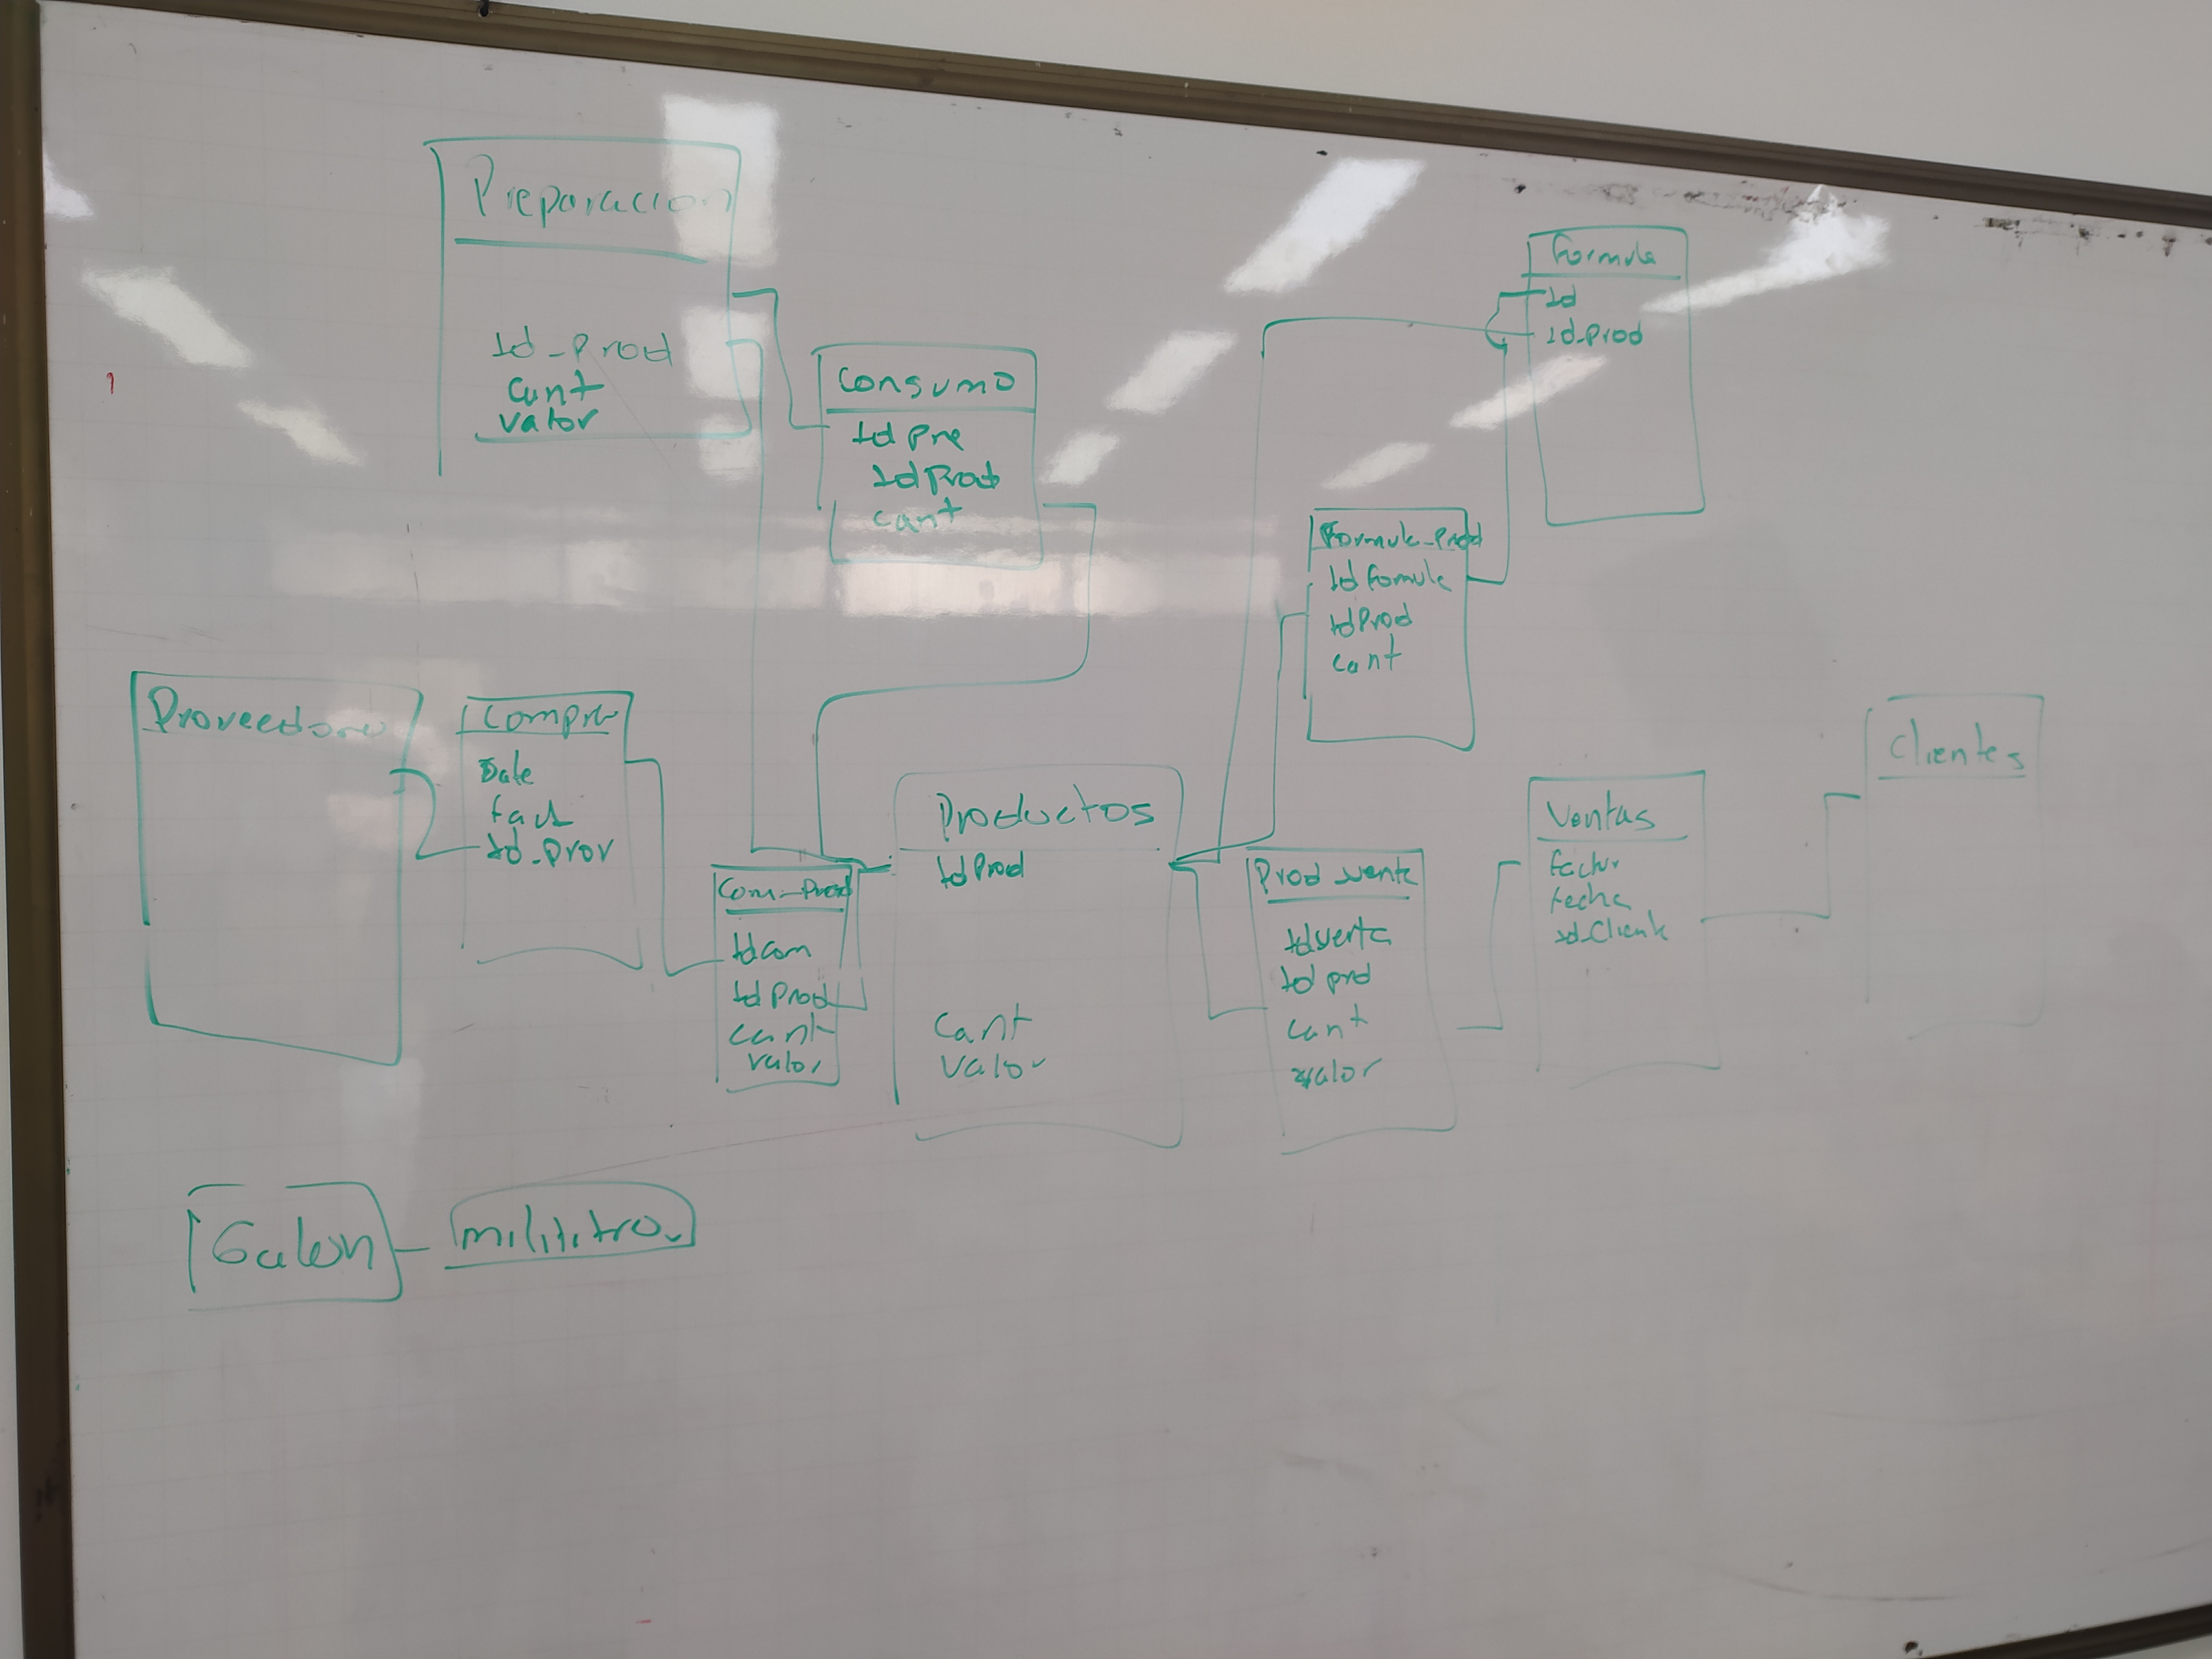 Preparacion
Id_Prod
Cant
valor
Consumo
Id Pre
Id Prod
cant
Formula
Id
Id_Prod
Formula_Prod
Id Formula
Id Prod
cant
Proveedores
Compra
Date
fact
Id_Prov
Com_Prod
Id com
Id Prod
cant
valor
Productos
Id Prod
Cant
Valor
Prod_venta
Id venta
Id prod
cant
valor
Ventas
factur
fecha
Id_Cliente
Clientes
Galon
mililitro